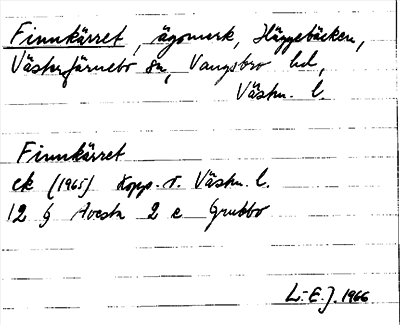 Finnkärret, ägomark, Häggebäcken,
Västerfärnebo sn, Vangsbro hd,
Västm. l.
Finnkärret
ek (1965) Kopp. o. Västm. l.
12 g Avesta 2 c Grubbo
L.-E. J. 1966